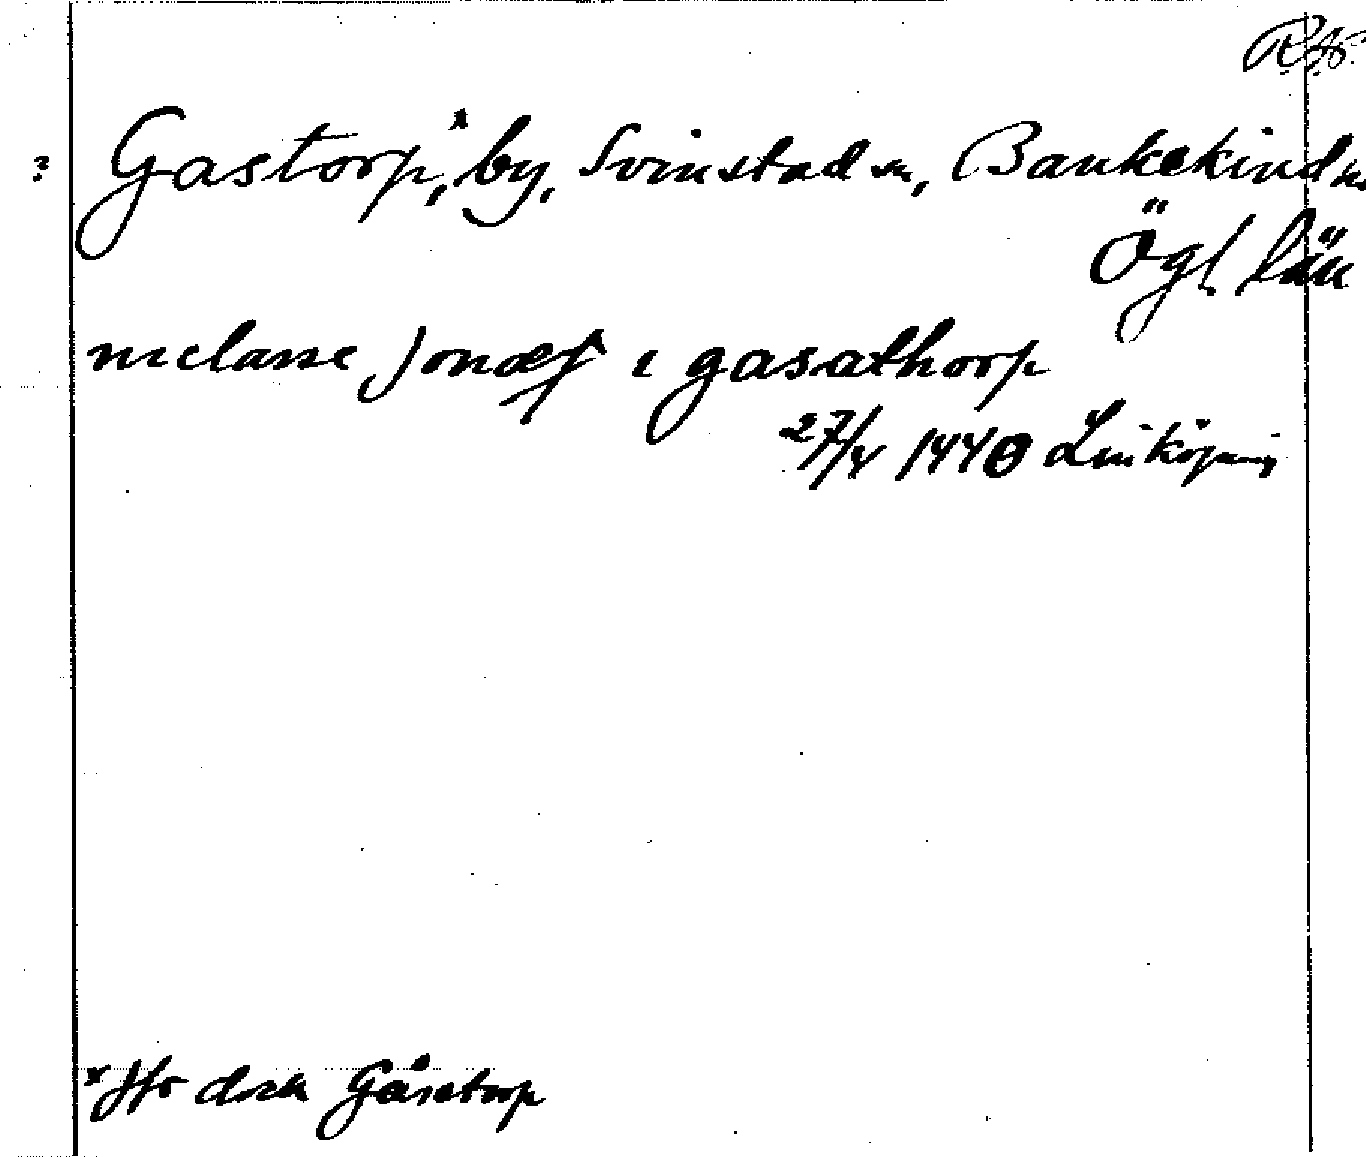 R.A.
? Gastorp,* by, Svinstad sn, Bankekind hd
Ögl. län
niclasse jonæ i gasathorp
27/4 1440 Linköping
* Jfr dock Gåsetorp